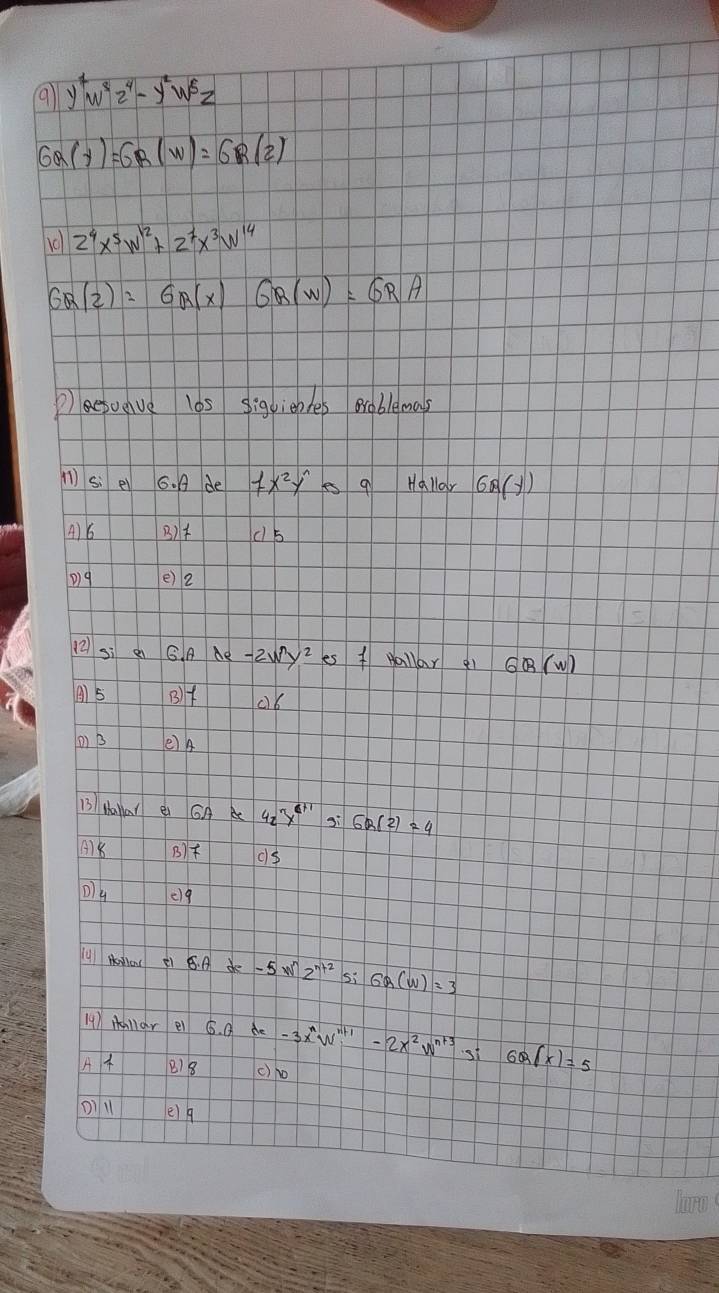 9) y⁷w⁸z⁴ - y²w⁵z
GR(y) = GR(w) = GR(z)
10) z⁹x⁵w¹² + z⁷x³w¹⁴
GR(z) = GR(x) GR(w) = GRA
Resuelve los siguientes problemas
11) Si el G.A de 7x²yⁿ es 9 Hallar GR(y)
A) 6 B) 7 c) 5
D) 9 e) 2
12) Si el G.A de -2wⁿy² es 7 Hallar el GR(w)
A) 5 B) 7 c) 6
D) 3 e) 4
13) Hallar el GA de 4zⁿy si GR(z) = 4
A) 8 B) 7 c) 5
D) 4 e) 9
14) Hallar el G.A de -5wⁿzⁿ⁺² si GR(w) = 3
14) Hallar el G.A de -3xⁿwⁿ⁺¹ - 2x²wⁿ⁺³ si GR(x) = 5
A 7 B) 8 c) 10
D) 11 e) 9
loro